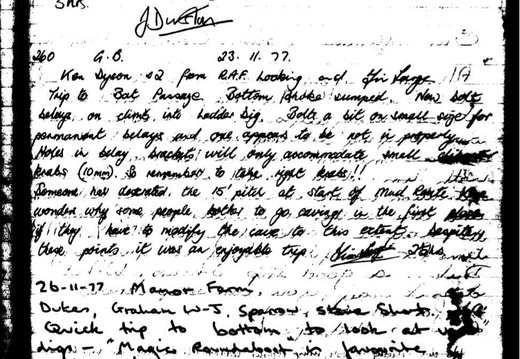 3 hrs.
J Durston
260 G.B. 23.11.77.
Ken Dyson +2 from R.A.F. Locking and Jim
Trip to Bat Passage. Bottom choke sumped. New bolt
belays on climb into Ladder Dig. Bolts a bit on small size for
permanent belays and one appears to be not in properly
Holes in belay brackets will only accommodate small
krabs (10mm). So remember to take right krabs!!
Someone has desecrated the 15' pitch at start of Mud Route
wonder why some people bother to go caving in the first place
if they have to modify the cave to this extent. Despite
these points it was an enjoyable trip
26-11-77 Manor Farm.
Dukes, Graham W-J, Sparrow, Steve Short.
Quick trip to bottom to look at
digs - "Magic Roundabout" is favourite